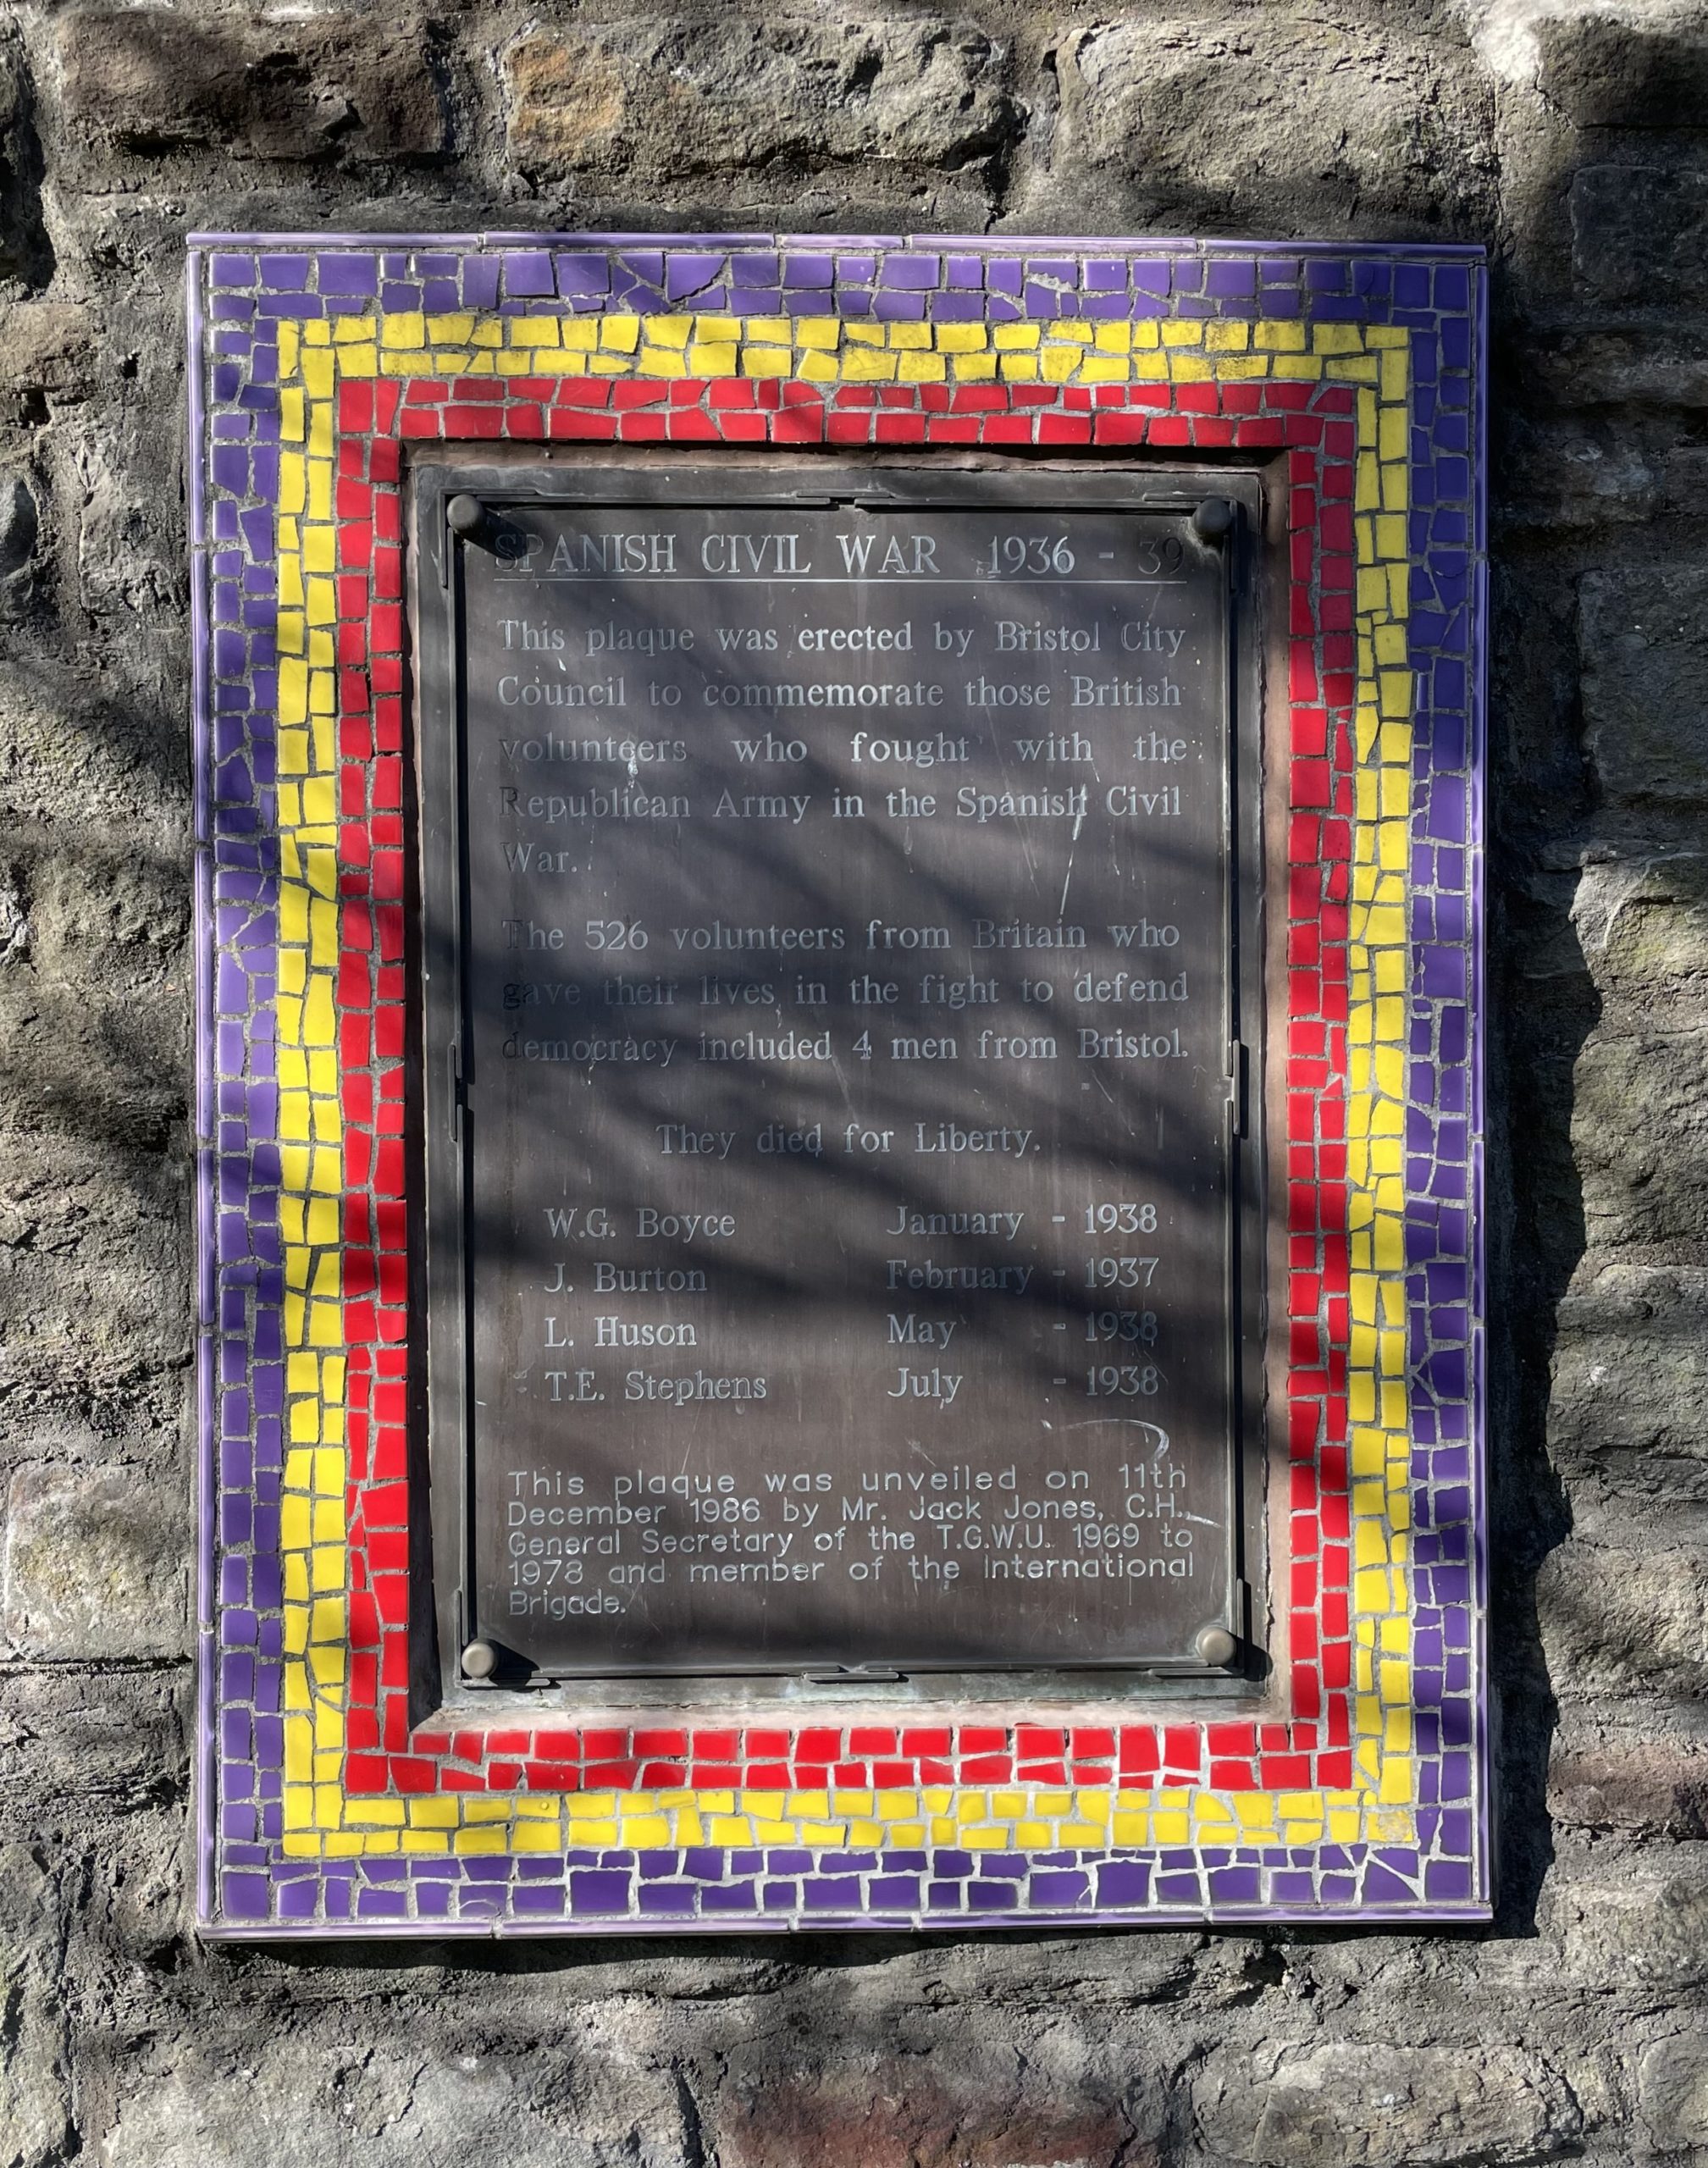 SPANISH CIVIL WAR 1936 - 39
This plaque was erected by Bristol City
Council to commemorate those British
volunteers who fought with the
Republican Army in the Spanish Civil
War.
The 526 volunteers from Britain who
gave their lives in the fight to defend
democracy included 4 men from Bristol.
They died for Liberty.
W.G. Boyce January - 1938
J. Burton February - 1937
L. Huson May - 1938
T.E. Stephens July - 1938
This plaque was unveiled on 11th
December 1986 by Mr. Jack Jones, C.H.,
General Secretary of the T.G.W.U. 1969 to
1978 and member of the International
Brigade.